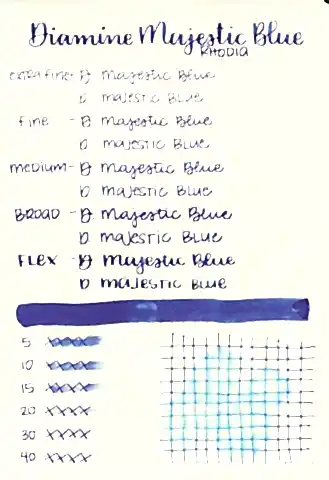 Diamine Majestic Blue
RHODIA
extra fine - D Majestic Blue
D MAJESTIC BLUE
fine - D Majestic Blue
D MAJESTIC BLUE
MEDIUM - D Majestic Blue
D MAJESTIC BLUE
BROAD - D. Majestic Blue
D. MAJESTIC BLUE
FLEX - D Majestic Blue
D MAJESTIC BLUE
5 XXXX
10 XXXX
15 XXXX
20 XXXX
30 XXXX
40 XXXX